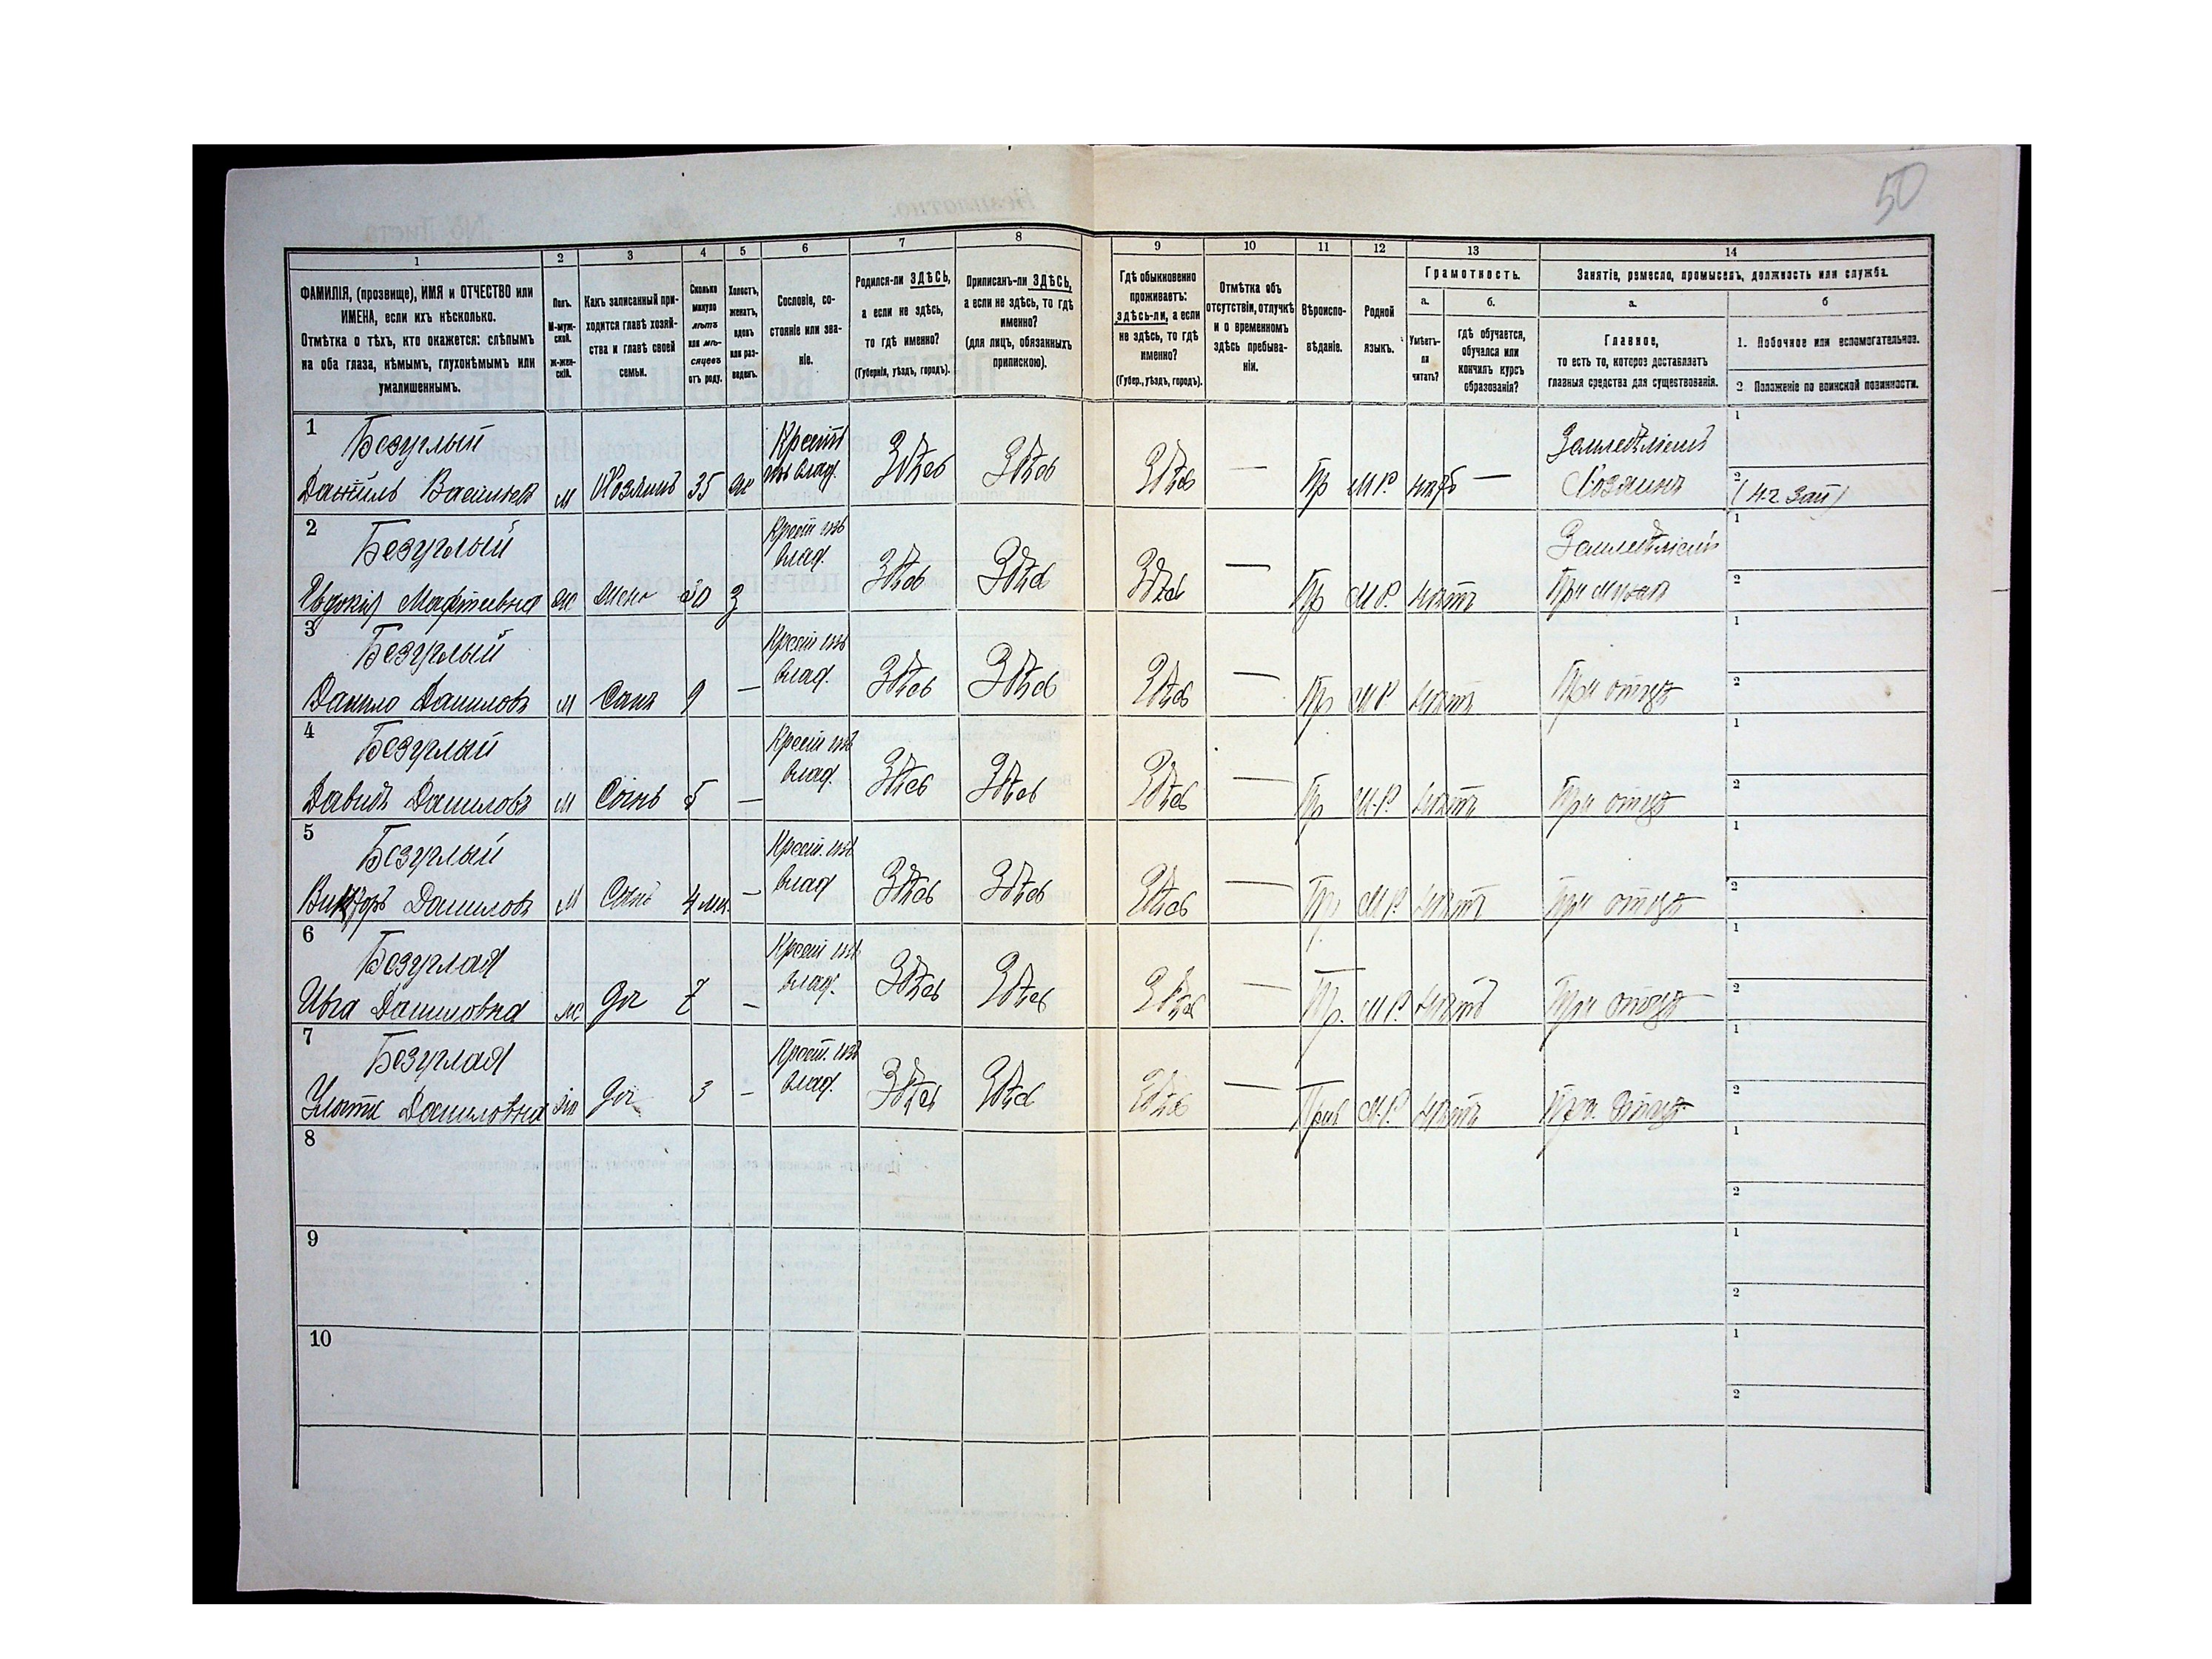 50
1 2 3 4 5 6 7 8 9 10 11 12 13 14
ФАМИЛІЯ, (прозвище), ИМЯ и ОТЧЕСТВО или
ИМЕНА, если ихъ нѣсколько.
Отмѣтка о тѣхъ, кто окажется: слѣпымъ
на оба глаза, нѣмымъ, глухонѣмымъ или
умалишеннымъ.
Полъ.
М-муж-
ской.
ж-жен-
скій.
Какъ записанный при-
ходится главѣ хозяй-
ства и главѣ своей
семьи.
Сколько
минуло
лѣтъ
или мѣ-
сяцевъ
отъ роду.
Холостъ,
женатъ,
вдовъ
или раз-
веденъ.
Сословіе, со-
стояніе или зва-
ніе.
Родился-ли ЗДѢСЬ,
а если не здѣсь,
то гдѣ именно?
(Губернія, уѣздъ, городъ).
Приписанъ-ли ЗДѢСЬ,
а если не здѣсь, то гдѣ
именно?
(для лицъ, обязанныхъ
припискою).
Гдѣ обыкновенно
проживаетъ:
здѣсь-ли, а если
не здѣсь, то гдѣ
именно?
(Губер., уѣздъ, городъ).
Отмѣтка объ
отсутствіи, отлучкѣ
и о временномъ
здѣсь пребыва-
ніи.
Вѣроиспо-
вѣданіе.
Родной
языкъ.
Грамотность.
а. б.
Умѣетъ-
ли
читать?
гдѣ обучается,
обучался или
кончилъ курсъ
образованія?
Занятіе, ремесло, промыселъ, должность или служба.
а. б
Главное,
то есть то, которое доставляетъ
главныя средства для существованія.
1. Побочное или вспомогательное.
2. Положеніе по воинской повинности.
1 Безуглый Крест Земледѣліемъ 1
Данiилъ Васильев м Хозяинъ 35 ж изъ влад. Здѣсь Здѣсь Здѣсь — Пр М.Р. — Хозяинъ 2
2 Безуглый Крест изъ Земледѣліемъ 1
Мафтеевна ж жена 30 з влад. Здѣсь Здѣсь Здѣсь — Пр М.Р. нѣтъ При мужѣ 2
3 Безуглый Крест изъ 1
Данило Даниловъ м Сынъ 9 — влад. Здѣсь Здѣсь Здѣсь — Пр М.Р. нѣтъ При отцѣ 2
4 Безуглый Крест изъ 1
Давидъ Даниловъ м Сынъ 5 — влад. Здѣсь Здѣсь Здѣсь — Пр М.Р. нѣтъ При отцѣ 2
5 Безуглый Крест. изъ 1
Викторъ Даниловъ м Сынъ 4 мѣ. — влад Здѣсь Здѣсь Здѣсь — Пр М.Р. нѣтъ При отцѣ 2
6 Безуглая Крест изъ 1
Ивга Даниловна ж доч 7 — влад. Здѣсь Здѣсь Здѣсь — Пр. М.Р. нѣтъ При отцѣ 2
7 Безуглая Крест. изъ 1
Даниловна ж доч 3 — влад. Здѣсь Здѣсь Здѣсь — Прав М.Р. нѣтъ При отцѣ 2
8 1
2
9 1
2
10 1
2